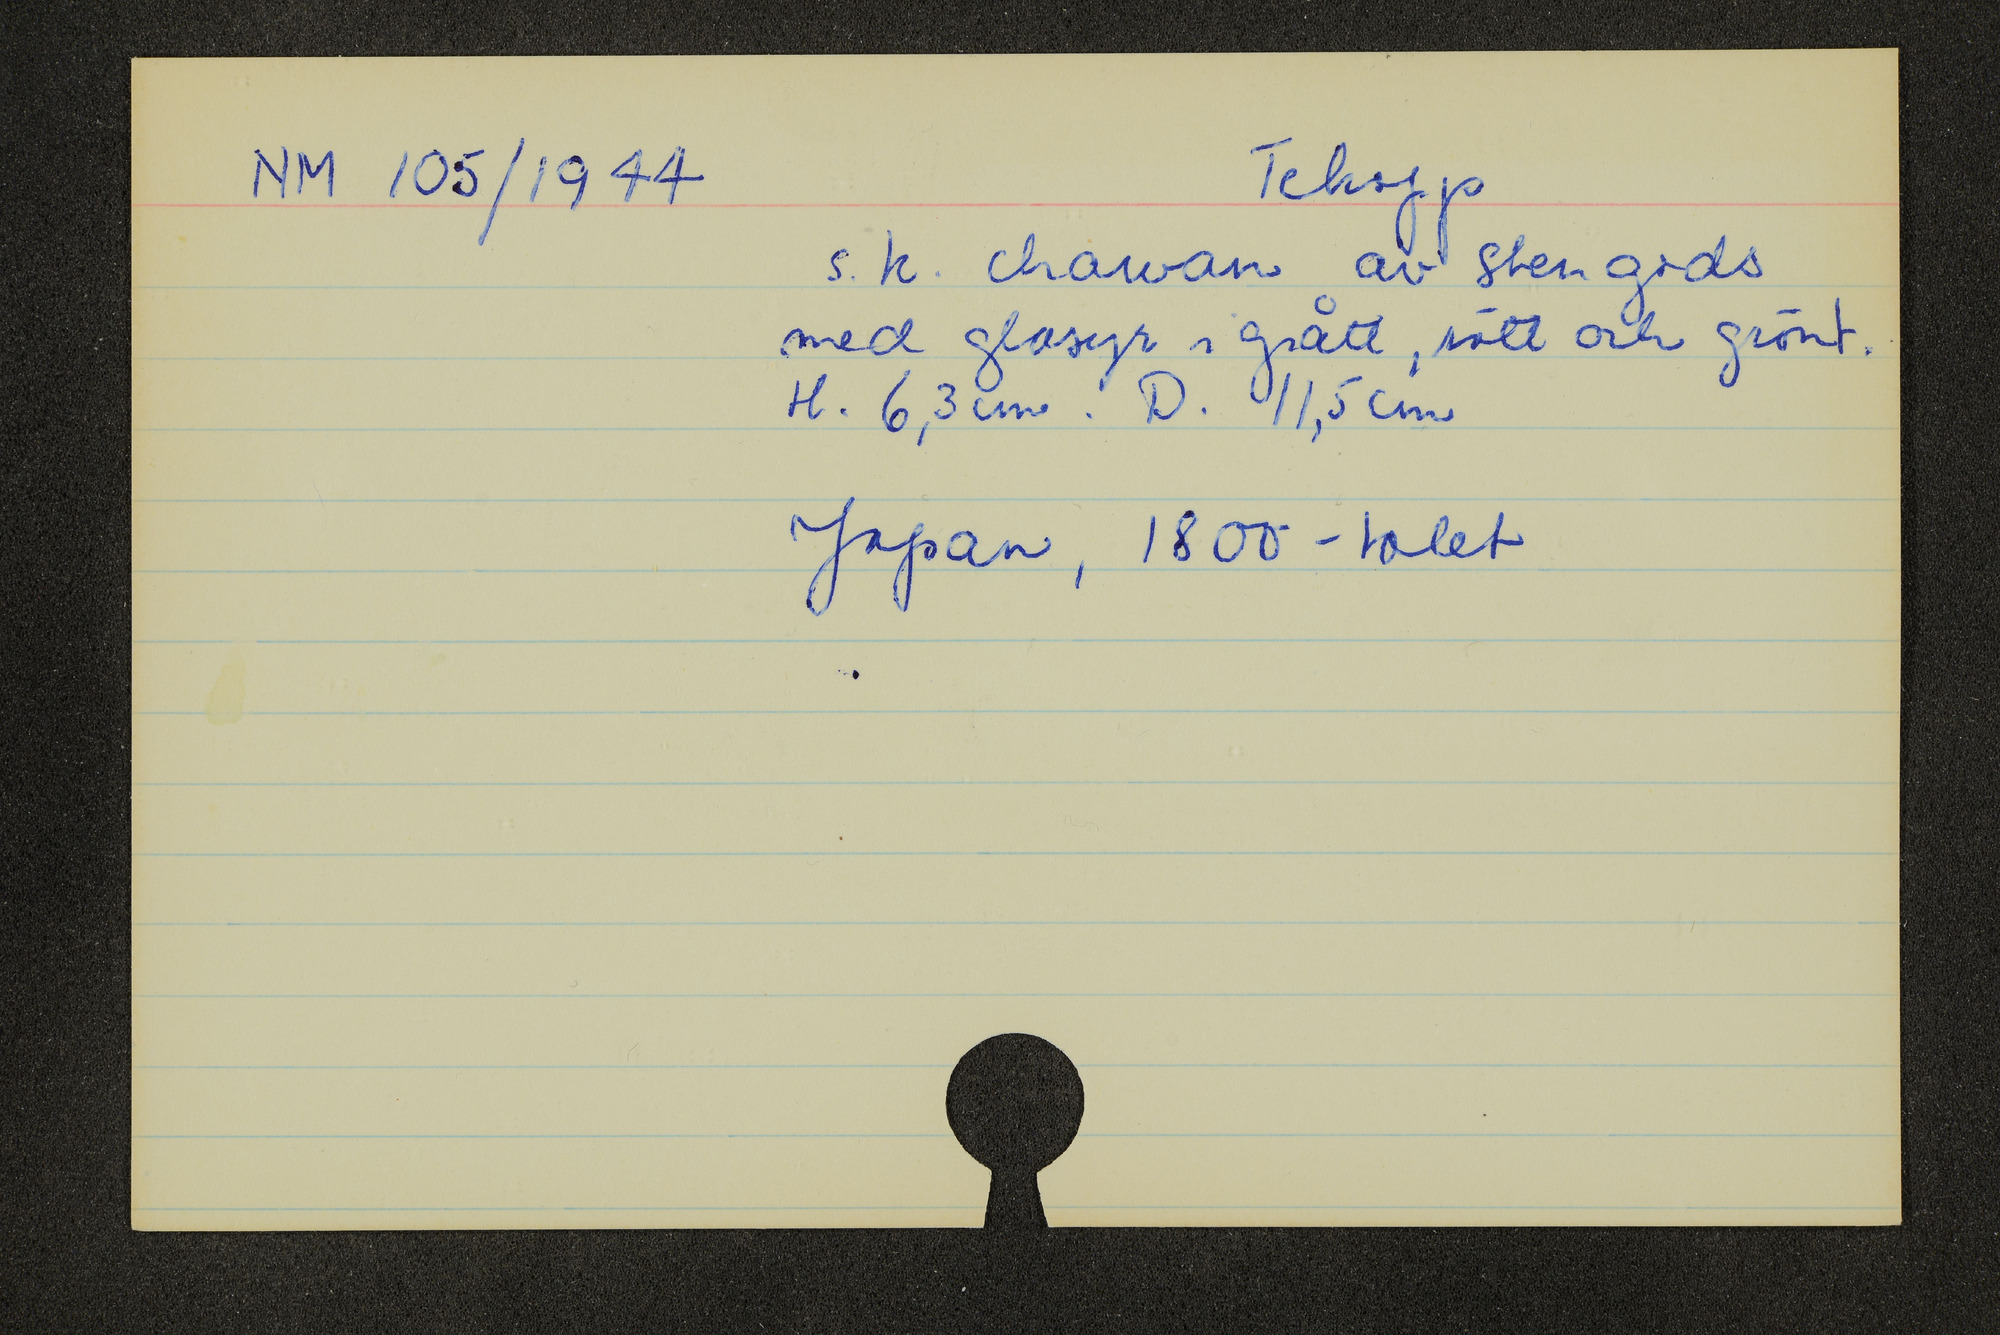 NM 105/1944 Tekopp
s.k. chawan av stengods
med glasyr i grått, rött och grönt.
H. 6,3 cm. D. 11,5 cm
Japan, 1800-talet